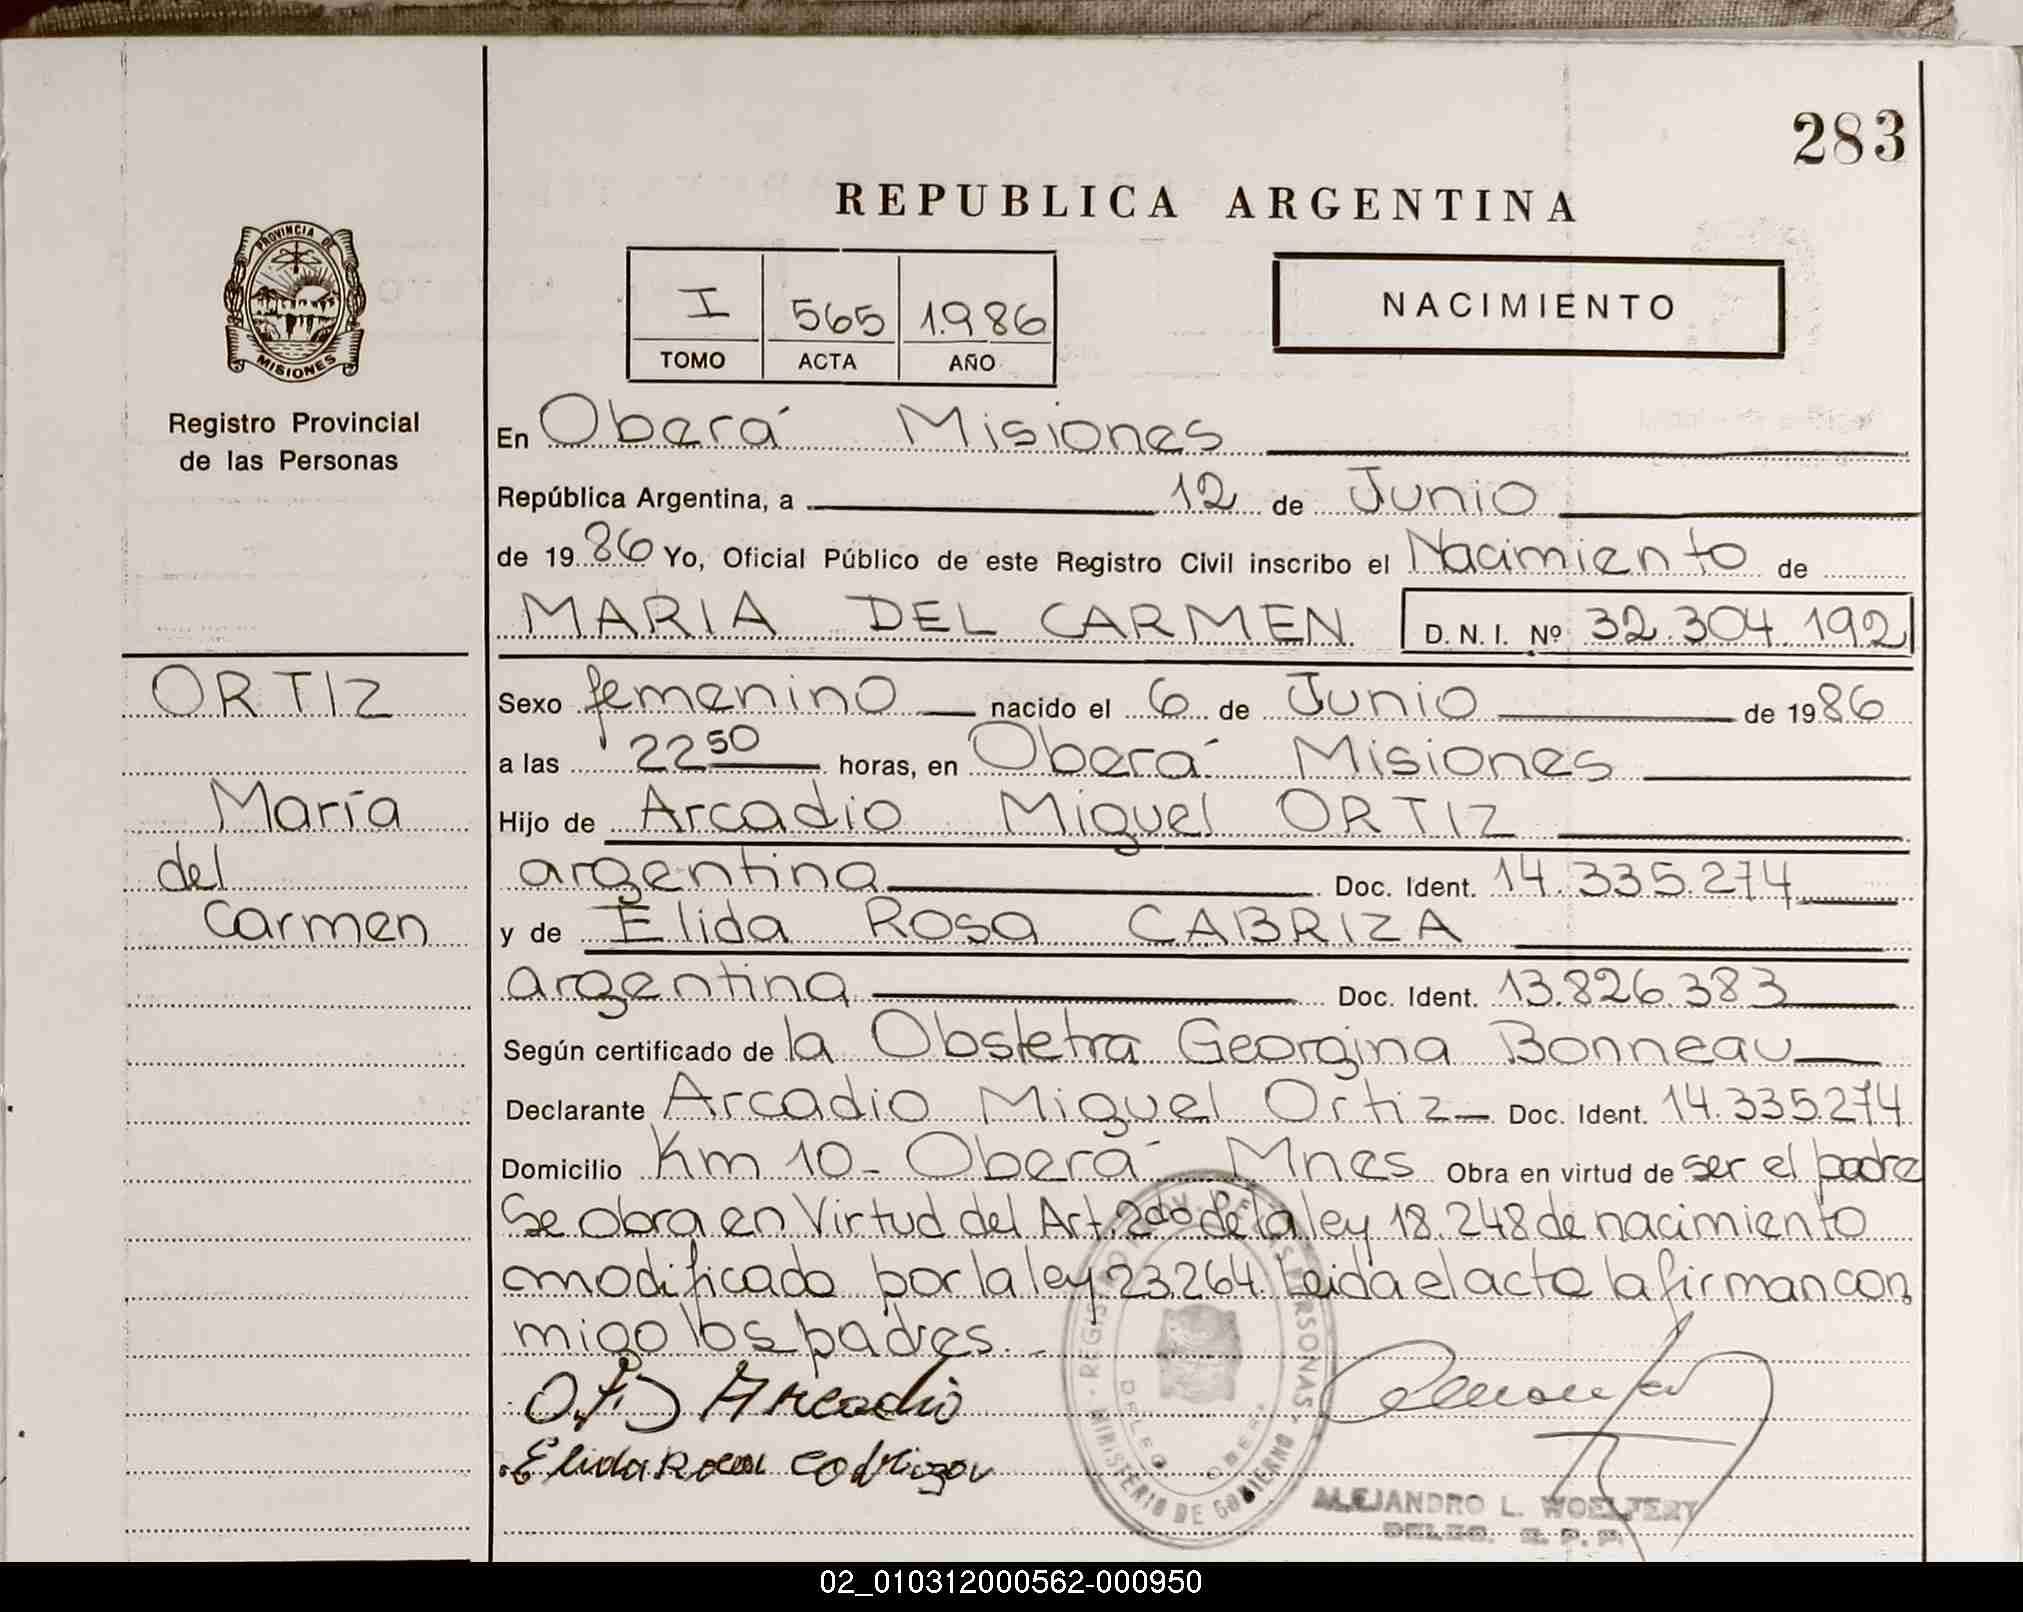 283
REPUBLICA ARGENTINA
PROVINCIA DE
MISIONES
Registro Provincial
de las Personas
I 565 1.986
TOMO ACTA AÑO
NACIMIENTO
En Oberá Misiones
República Argentina, a 12 de Junio
de 1986 Yo, Oficial Público de este Registro Civil inscribo el Nacimiento de
MARIA DEL CARMEN D. N. I. Nº 32.304.192
ORTIZ
María
del
Carmen
Sexo femenino nacido el 6 de Junio de 1986
a las 22 50 horas, en Oberá Misiones
Hijo de Arcadio Miguel ORTIZ
argentina Doc. Ident. 14.335.274
y de Elida Rosa CABRIZA
argentina Doc. Ident. 13.826.383
Según certificado de la Obstetra Georgina Bonneau
Declarante Arcadio Miguel Ortiz Doc. Ident. 14.335.274
Domicilio Km 10 - Oberá Mnes Obra en virtud de ser el padre
Se obra en Virtud del Art. 2do de la ley 18.248 de nacimiento
modificado por la ley 23.264. Leida el acta la firman con
migo los padres.
Arcadio
Elida Rosa
REGISTRO PROV. DE LAS PERSONAS
MINISTERIO DE GOBIERNO
ALEJANDRO L.
DELEG. R. P. P.
02_010312000562-000950